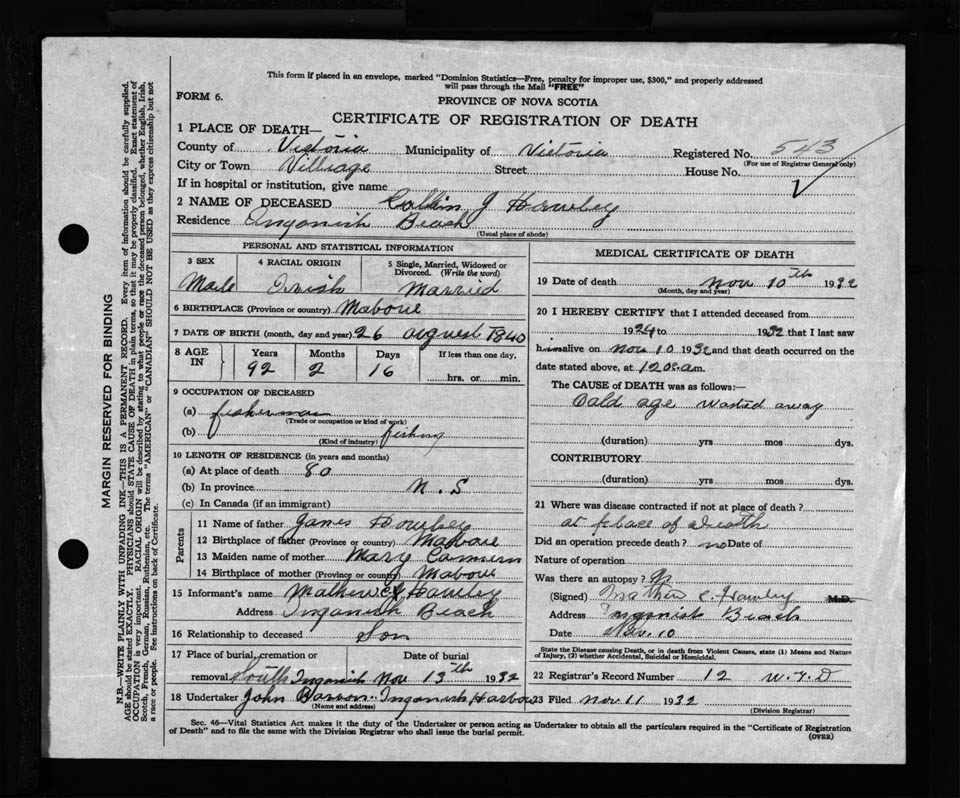 This form if placed in an envelope, marked "Dominion Statistics—Free, penalty for improper use, $300," and properly addressed
will pass through the Mail "FREE"
FORM 6.
PROVINCE OF NOVA SCOTIA
CERTIFICATE OF REGISTRATION OF DEATH
1 PLACE OF DEATH—
County of Victoria Municipality of Victoria Registered No. 543
(For use of Registrar General only)
City or Town Villiage Street House No.
If in hospital or institution, give name
2 NAME OF DECEASED Collin J Hawley
Residence Inganish Beach
(Usual place of abode)
PERSONAL AND STATISTICAL INFORMATION
3 SEX 4 RACIAL ORIGIN 5 Single, Married, Widowed or Divorced. (Write the word)
Male Irish Married
6 BIRTHPLACE (Province or country) Maboue
7 DATE OF BIRTH (month, day and year) 26 august 1840
8 AGE IN Years Months Days If less than one day,
92 2 16 hrs. or min.
9 OCCUPATION OF DECEASED
(a) fisherman
(Trade or occupation or kind of work)
(b) fishing
(Kind of industry)
10 LENGTH OF RESIDENCE (in years and months)
(a) At place of death 80
(b) In province N.S
(c) In Canada (if an immigrant)
Parents
11 Name of father James Hawley
12 Birthplace of father (Province or country) Maboue
13 Maiden name of mother Mary
14 Birthplace of mother (Province or country) Maboue
15 Informant's name Mathew C Hawley
Address Inganish Beach
16 Relationship to deceased Son
17 Place of burial, cremation or Date of burial
removal South Inganish Nov 13th 1932
18 Undertaker John Barron Inganish Harbou
(Name and address)
MEDICAL CERTIFICATE OF DEATH
19 Date of death Nov 10th 1932
(Month, day and year)
20 I HEREBY CERTIFY that I attended deceased from
1924 to 1932 that I last saw
him alive on Nov 10 1932 and that death occurred on the
date stated above, at 12 a.m.
The CAUSE of DEATH was as follows:—
Oald age wasted away
(duration) yrs mos dys.
CONTRIBUTORY
(duration) yrs mos dys.
21 Where was disease contracted if not at place of death?
at place of death
Did an operation precede death? no Date of
Nature of operation
Was there an autopsy?
(Signed) Mathew C Hawley M.D.
Address Inganish Beach
Date Nov. 10
State the Disease causing Death, or in death from Violent Causes, state (1) Means and Nature
of Injury, (2) whether Accidental, Suicidal or Homicidal.
22 Registrar's Record Number 12 W.Y.D
23 Filed Nov 11 1932
(Division Registrar)
Sec. 46—Vital Statistics Act makes it the duty of the Undertaker or person acting as Undertaker to obtain all the particulars required in the "Certificate of Registration
of Death" and to file the same with the Division Registrar who shall issue the burial permit.
(OVER)
MARGIN RESERVED FOR BINDING
N.B.—WRITE PLAINLY WITH UNFADING INK—THIS IS A PERMANENT RECORD. Every item of information should be carefully supplied.
AGE should be stated EXACTLY. PHYSICIANS should STATE CAUSE OF DEATH in plain terms, so that it may be properly classified. Exact statement of
OCCUPATION is very important. RACIAL ORIGIN will be described by stating to what people or race the deceased person belonged, whether English, Irish,
Scotch, French, German, Russian, Ruthenian, etc. The terms "AMERICAN" or "CANADIAN" SHOULD NOT BE USED as they express citizenship but not
a race or people. See instructions on back of Certificate.